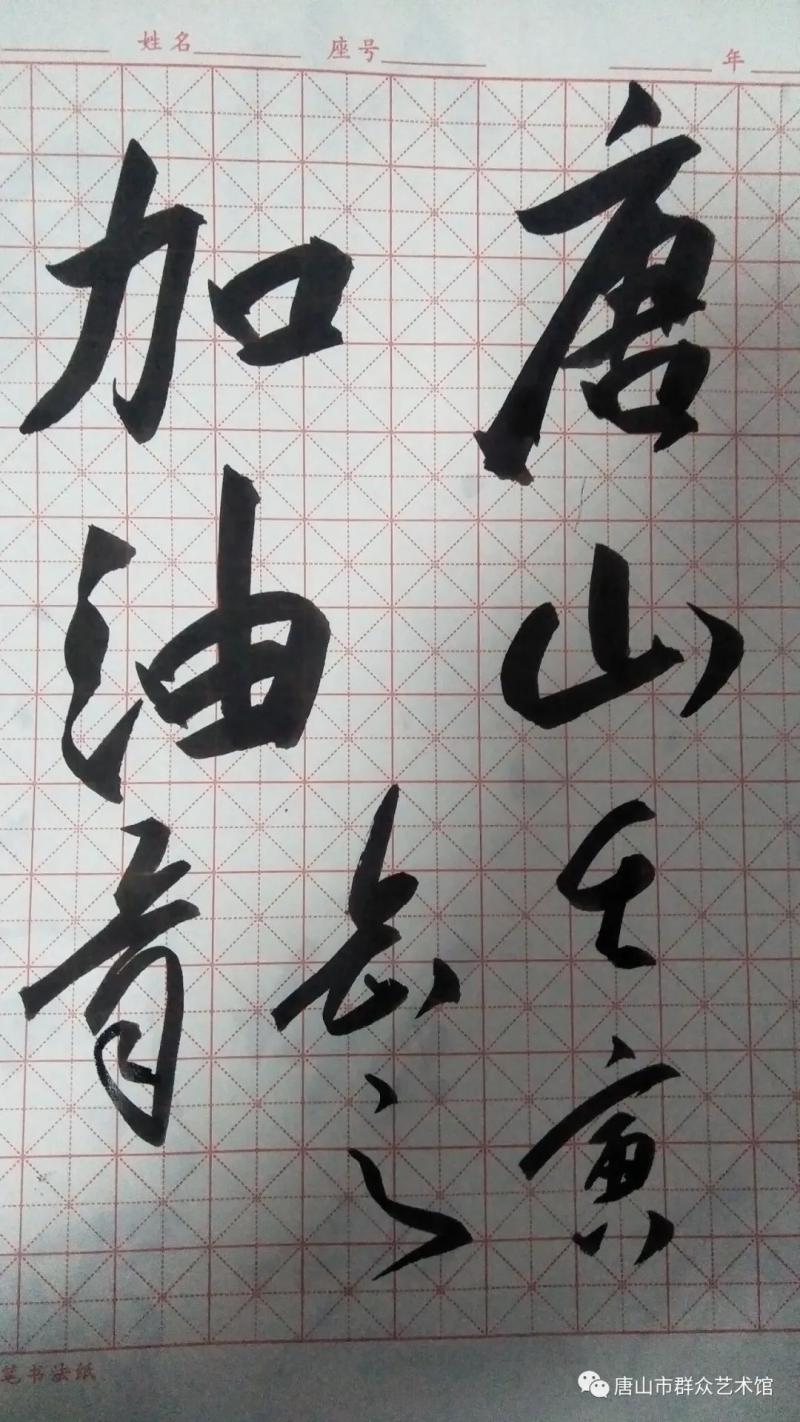 姓名 座号 年
唐山
加油
之
笔书法纸
唐山市群众艺术馆